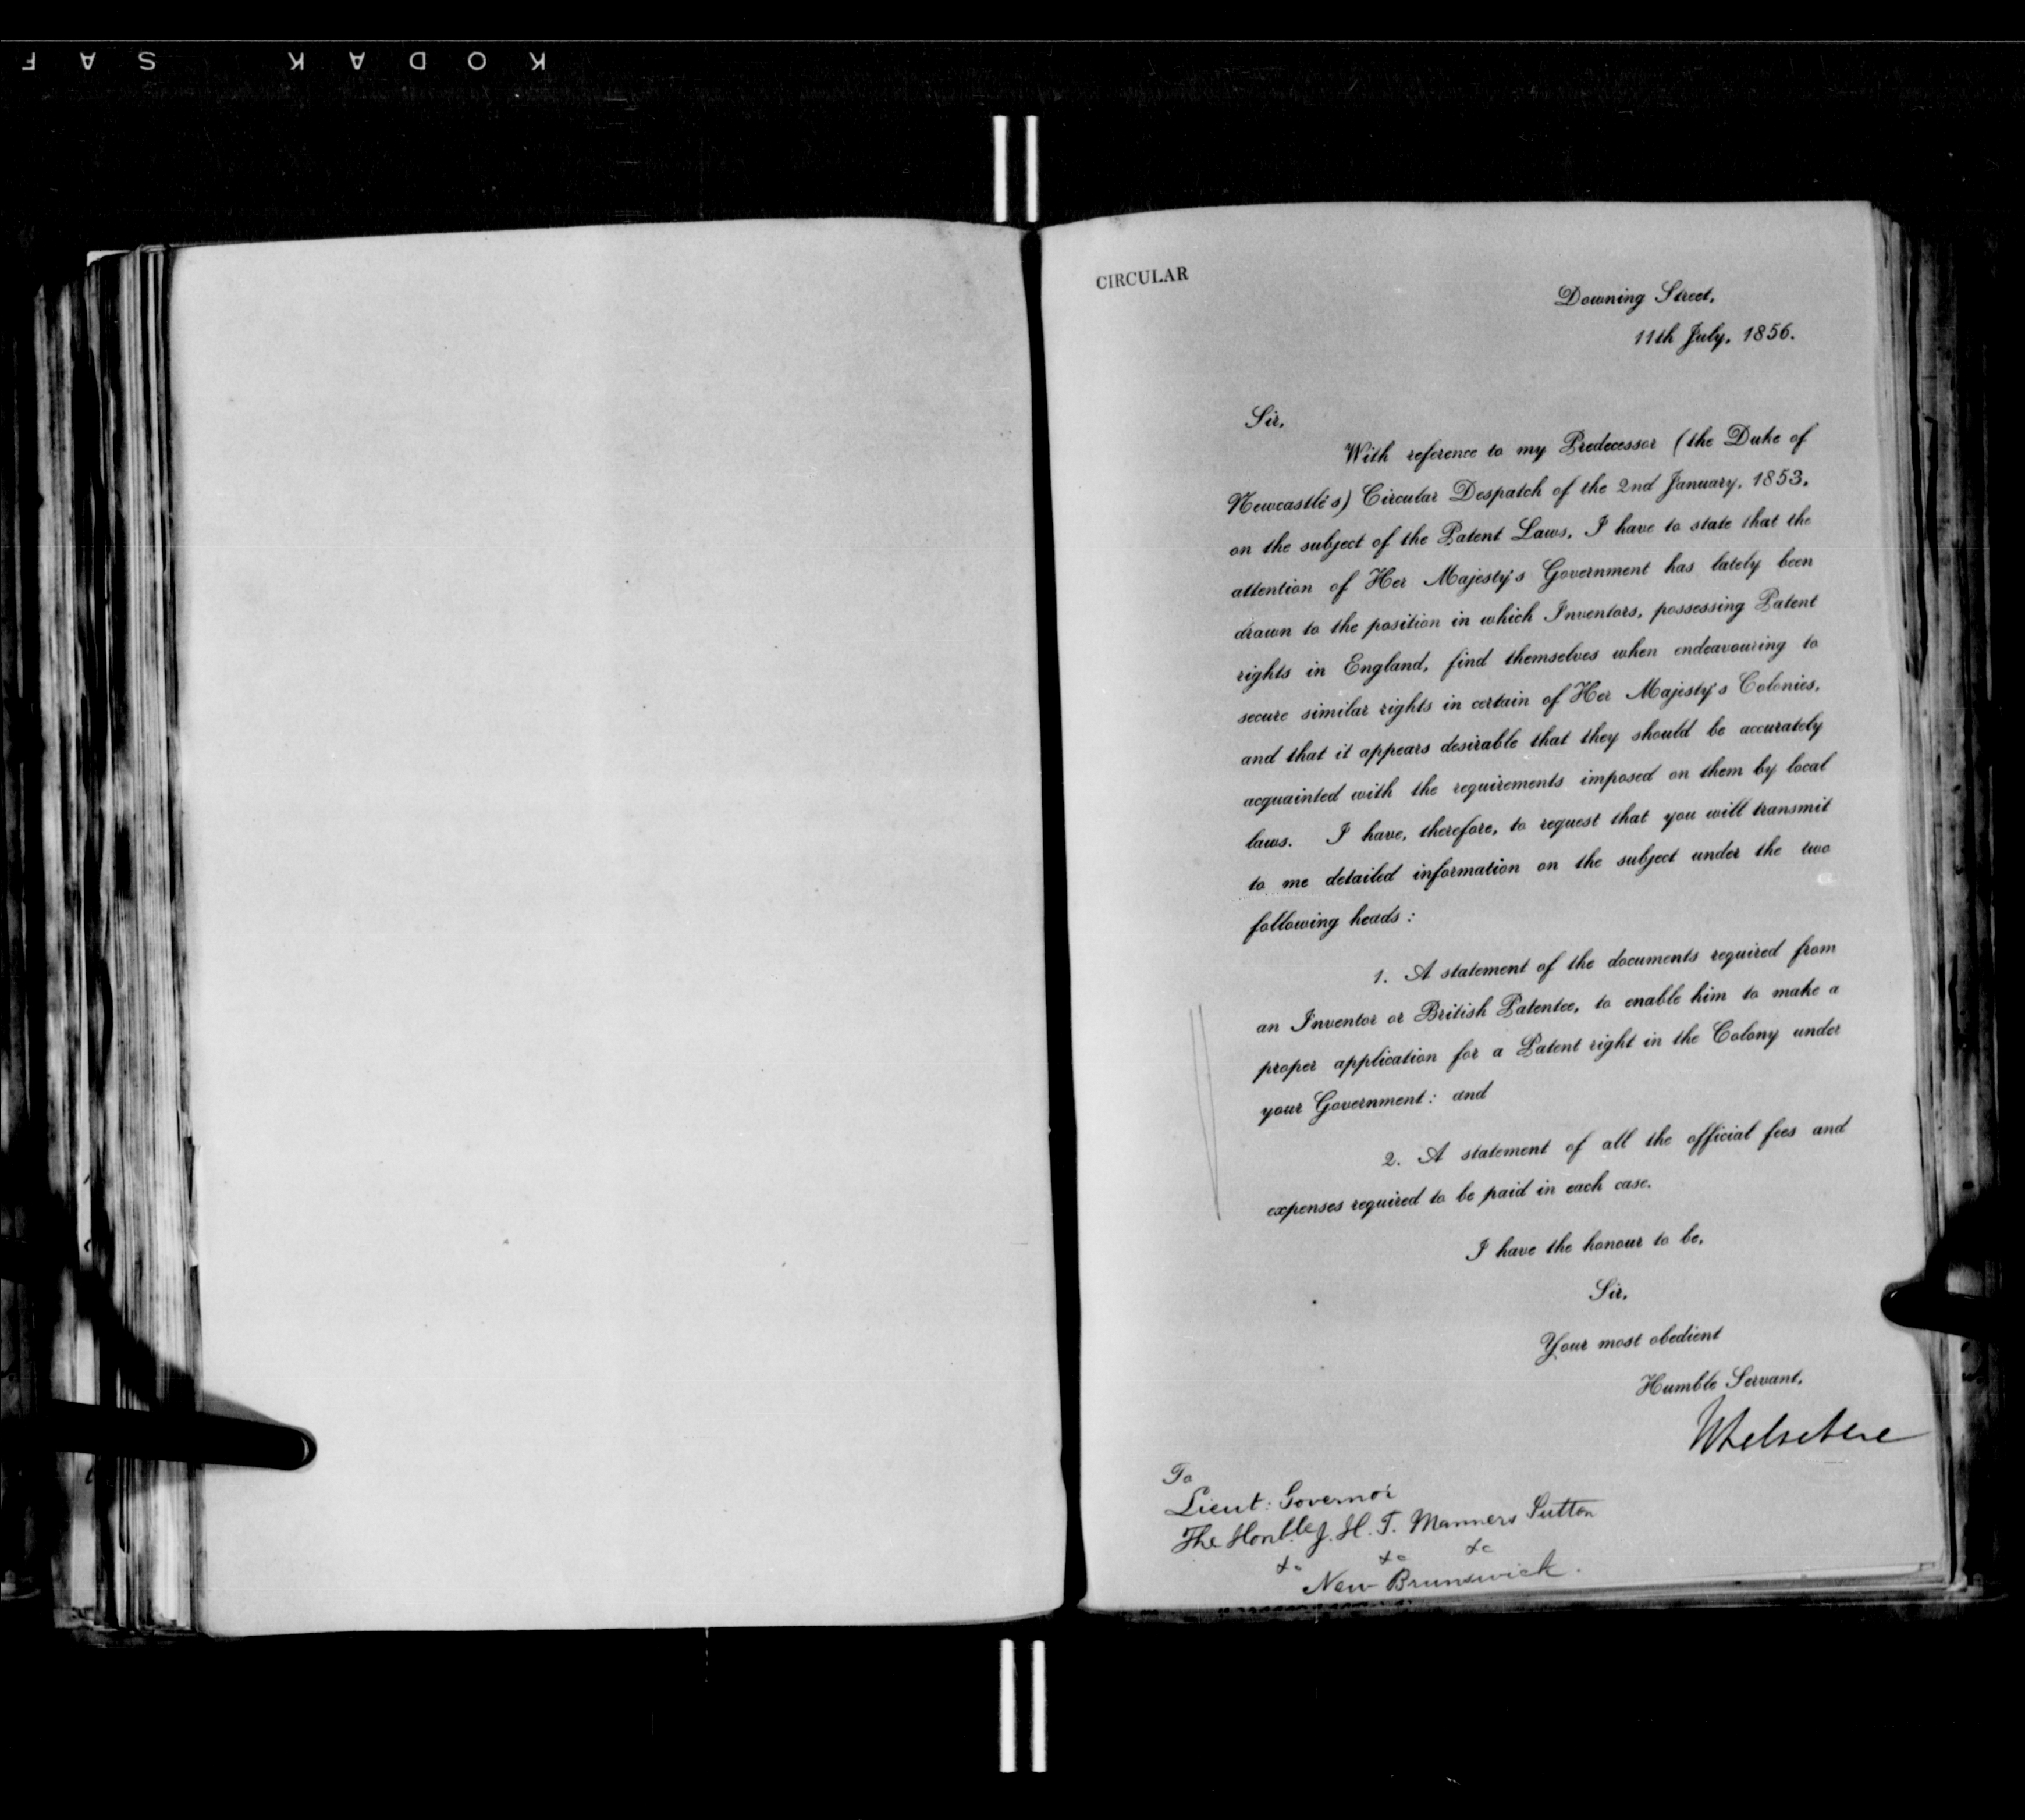 KODAK SAF
CIRCULAR
Downing Street,
11th July, 1856.
Sir,
With reference to my Predecessor (the Duke of
Newcastle's) Circular Despatch of the 2nd January, 1853,
on the subject of the Patent Laws, I have to state that the
attention of Her Majesty's Government has lately been
drawn to the position in which Inventors, possessing Patent
rights in England, find themselves when endeavouring to
secure similar rights in certain of Her Majesty's Colonies,
and that it appears desirable that they should be accurately
acquainted with the requirements imposed on them by local
laws. I have, therefore, to request that you will transmit
to me detailed information on the subject under the two
following heads:
1. A statement of the documents required from
an Inventor or British Patentee, to enable him to make a
proper application for a Patent right in the Colony under
your Government: and
2. A statement of all the official fees and
expenses required to be paid in each case.
I have the honour to be,
Sir,
Your most obedient
Humble Servant,
To
Lieut: Governor
The Honble J. H. T. Manners Sutton
&c &c &c
New Brunswick.